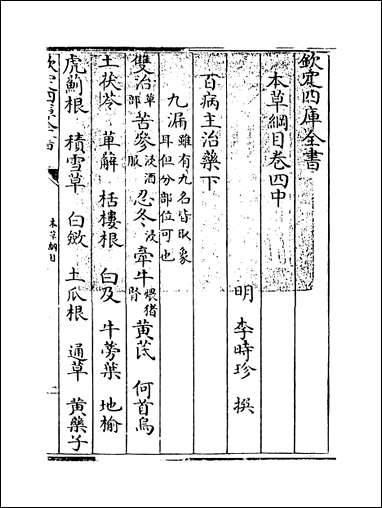 欽定四庫全書
本草綱目卷四中
明 李時珍 撰
百病主治藥下
九漏雖有九名皆取象耳但分部位可也
雙治草部苦參浸酒服忍冬浸牽牛煨猪腎黃芪 何首烏
土茯苓 萆薢 栝樓根 白及 牛蒡葉 地榆
虎薊根 積雪草 白斂 土瓜根 通草 黃藥子
本草綱目